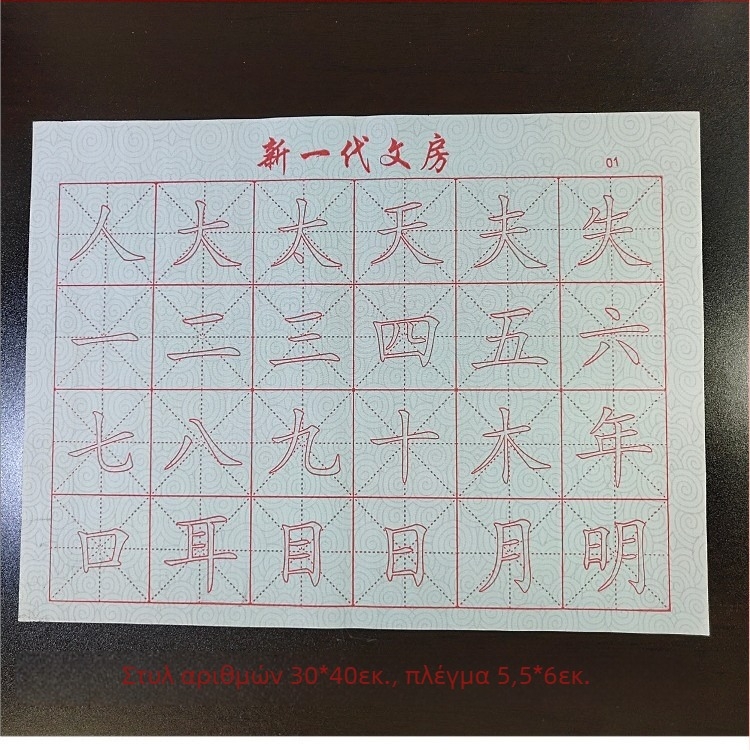 新一代文房
01
人大太天夫失
一二三四五六
七八九十木年
口耳目日月明
Στυλ αριθμών 30*40εκ., πλέγμα 5,5*6εκ.